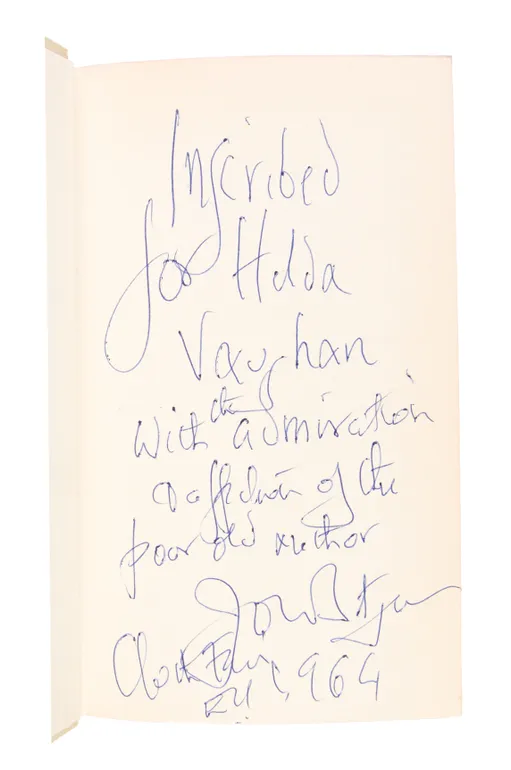 Inscribed
for Hilda
Vaughan
With the admiration
& affection of the
poor old author
John Betjeman
Cloth Fair
EC1 1964